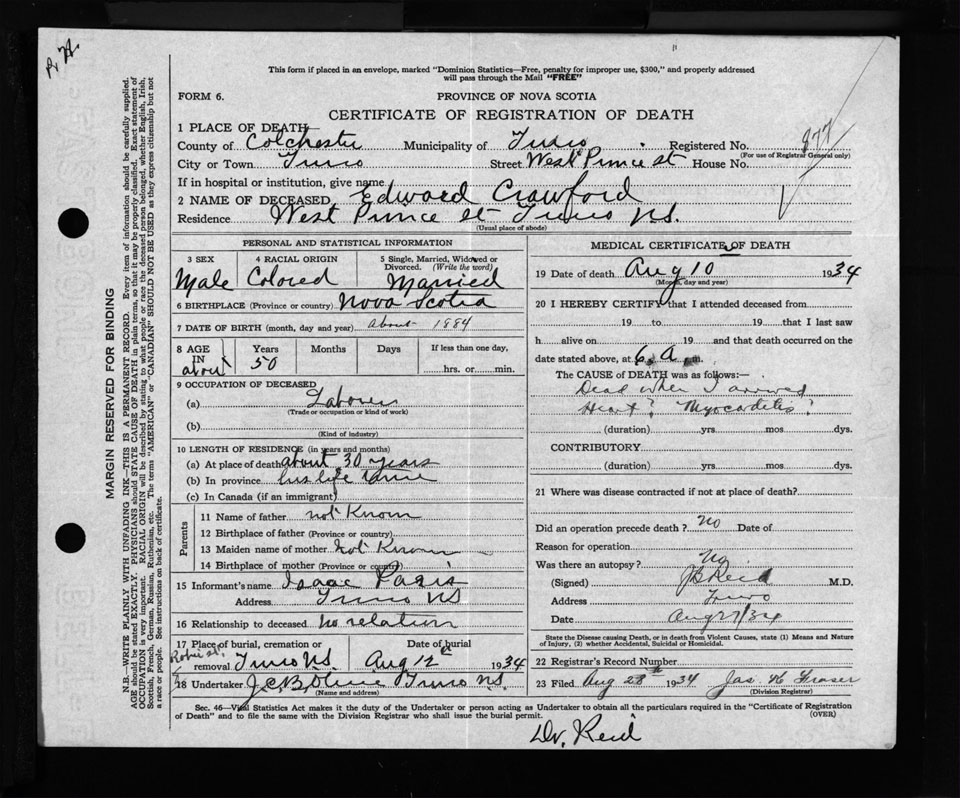 This form if placed in an envelope, marked "Dominion Statistics—Free, penalty for improper use, $300," and properly addressed
will pass through the Mail "FREE"
FORM 6.
PROVINCE OF NOVA SCOTIA
CERTIFICATE OF REGISTRATION OF DEATH
1 PLACE OF DEATH
County of Colchester Municipality of Truro Registered No. 877
(For use of Registrar General only)
City or Town Truro Street West Prince St House No.
If in hospital or institution, give name
2 NAME OF DECEASED Edward Crawford
Residence West Prince St Truro N.S.
(Usual place of abode)
PERSONAL AND STATISTICAL INFORMATION
3 SEX 4 RACIAL ORIGIN 5 Single, Married, Widowed or Divorced. (Write the word)
Male Colored Married
6 BIRTHPLACE (Province or country) Nova Scotia
7 DATE OF BIRTH (month, day and year) about 1884
8 AGE IN about Years 50 Months Days If less than one day, hrs. or min.
9 OCCUPATION OF DECEASED
(a) Laborer
(Trade or occupation or kind of work)
(b)
(Kind of industry)
10 LENGTH OF RESIDENCE (in years and months)
(a) At place of death about 30 years
(b) In province his life time
(c) In Canada (if an immigrant)
Parents
11 Name of father not Known
12 Birthplace of father (Province or country)
13 Maiden name of mother not Known
14 Birthplace of mother (Province or country)
15 Informant's name Isaac Paris
Address Truro NS
16 Relationship to deceased no relation
17 Place of burial, cremation or removal. Truro N.S. Date of burial Aug 12th 1934
18 Undertaker Truro N.S.
(Name and address)
MEDICAL CERTIFICATE OF DEATH
19 Date of death Aug 10 1934
(Month, day and year)
20 I HEREBY CERTIFY that I attended deceased from
19 to 19 that I last saw
h alive on 19 and that death occurred on the
date stated above, at 6 A m.
The CAUSE of DEATH was as follows:—
Dead when I arrived
Heart? Myocarditis?
(duration) yrs. mos. dys.
CONTRIBUTORY
(duration) yrs. mos. dys.
21 Where was disease contracted if not at place of death?
Did an operation precede death? No Date of
Reason for operation
Was there an autopsy? No
(Signed) J B Reid M.D.
Address Truro
Date Aug 27/34
State the Disease causing Death, or in death from Violent Causes, state (1) Means and Nature
of Injury, (2) whether Accidental, Suicidal or Homicidal.
22 Registrar's Record Number
23 Filed Aug 28th 1934 Jas. W Fraser
(Division Registrar)
Sec. 46—Vital Statistics Act makes it the duty of the Undertaker or person acting as Undertaker to obtain all the particulars required in the "Certificate of Registration
of Death" and to file the same with the Division Registrar who shall issue the burial permit. (OVER)
Dr. Reid
MARGIN RESERVED FOR BINDING
N.B.—WRITE PLAINLY WITH UNFADING INK—THIS IS A PERMANENT RECORD. Every item of information should be carefully supplied.
AGE should be stated EXACTLY. PHYSICIANS should STATE CAUSE OF DEATH in plain terms, so that it may be properly classified. Exact statement of
OCCUPATION is very important. RACIAL ORIGIN will be described by stating to what people or race the deceased person belonged, whether English, Irish,
Scottish, French, German, Russian, Ruthenian, etc. The terms "AMERICAN" or "CANADIAN" SHOULD NOT BE USED as they express citizenship but not
a race or people. See instructions on back of certificate.